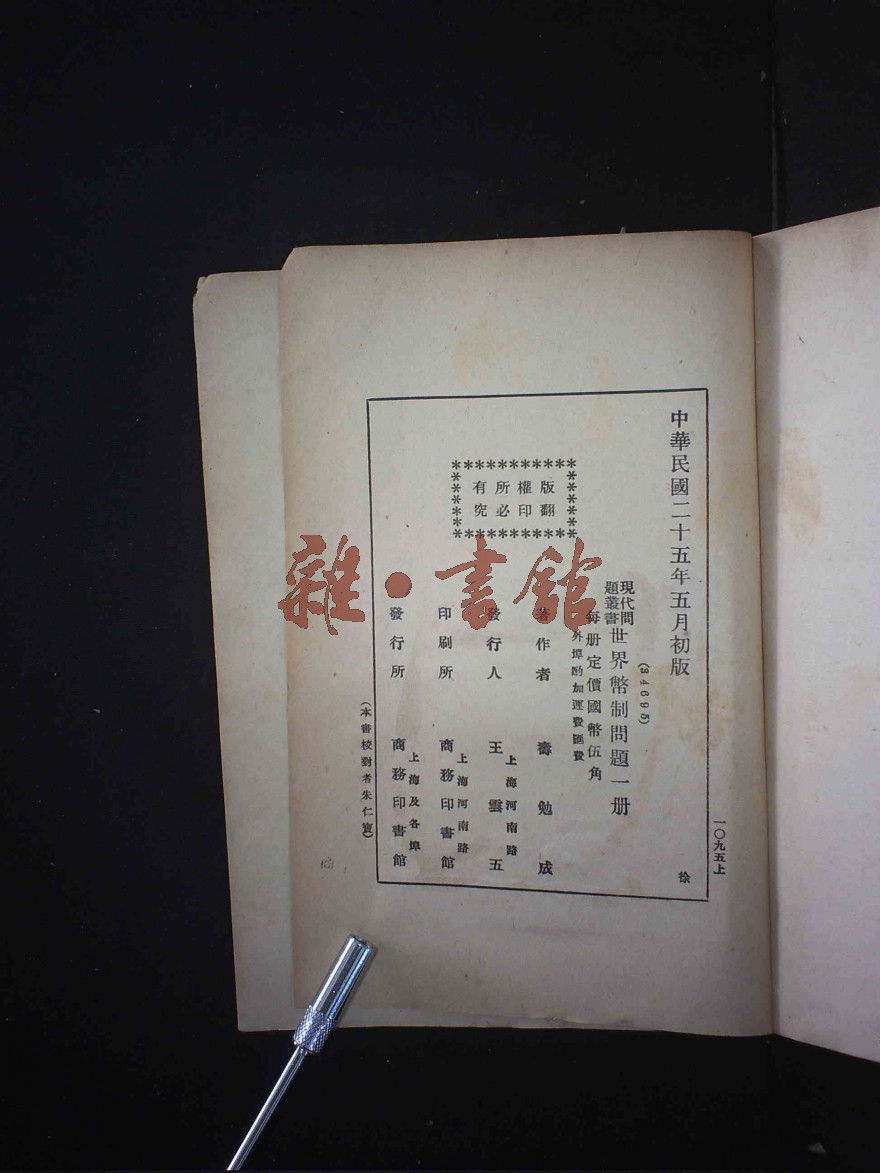 一〇九五上
中華民國二十五年五月初版
徐
(34695)
現代問題叢書 世界幣制問題一册
每册定價國幣伍角
外埠酌加運費匯費
版權所有
翻印必究
著作者 壽勉成
上海河南路
發行人 王雲五
上海河南路
印刷所 商務印書館
上海及各埠
發行所 商務印書館
(本書校對者朱仁寶)
雜·書館